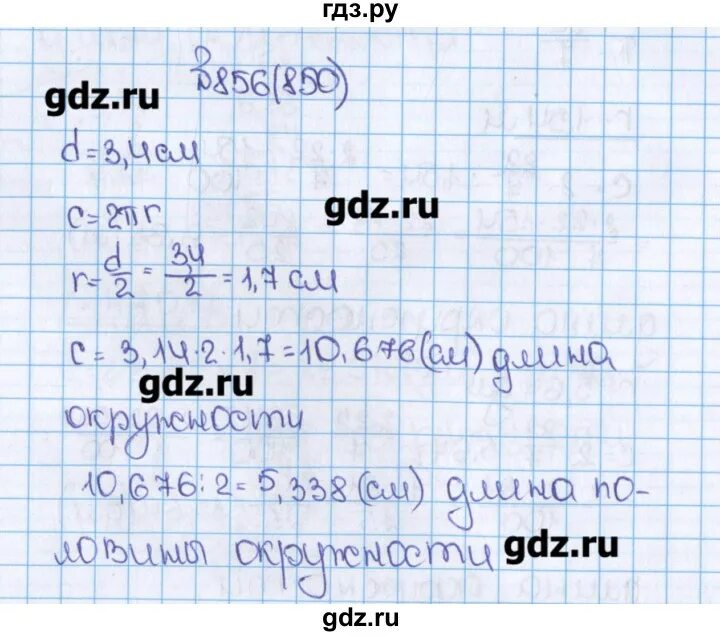 гдз.ру
№856(850)
gdz.ru
d=3,4см
c=2πr
gdz.ru
r=d/2=3,4/2=1,7 см
c=3,14·2·1,7=10,676(см) длина
gdz.ru
окружности
10,676:2=5,338(см) длина по-
ловины окружности
gdz.ru
gdz.ru